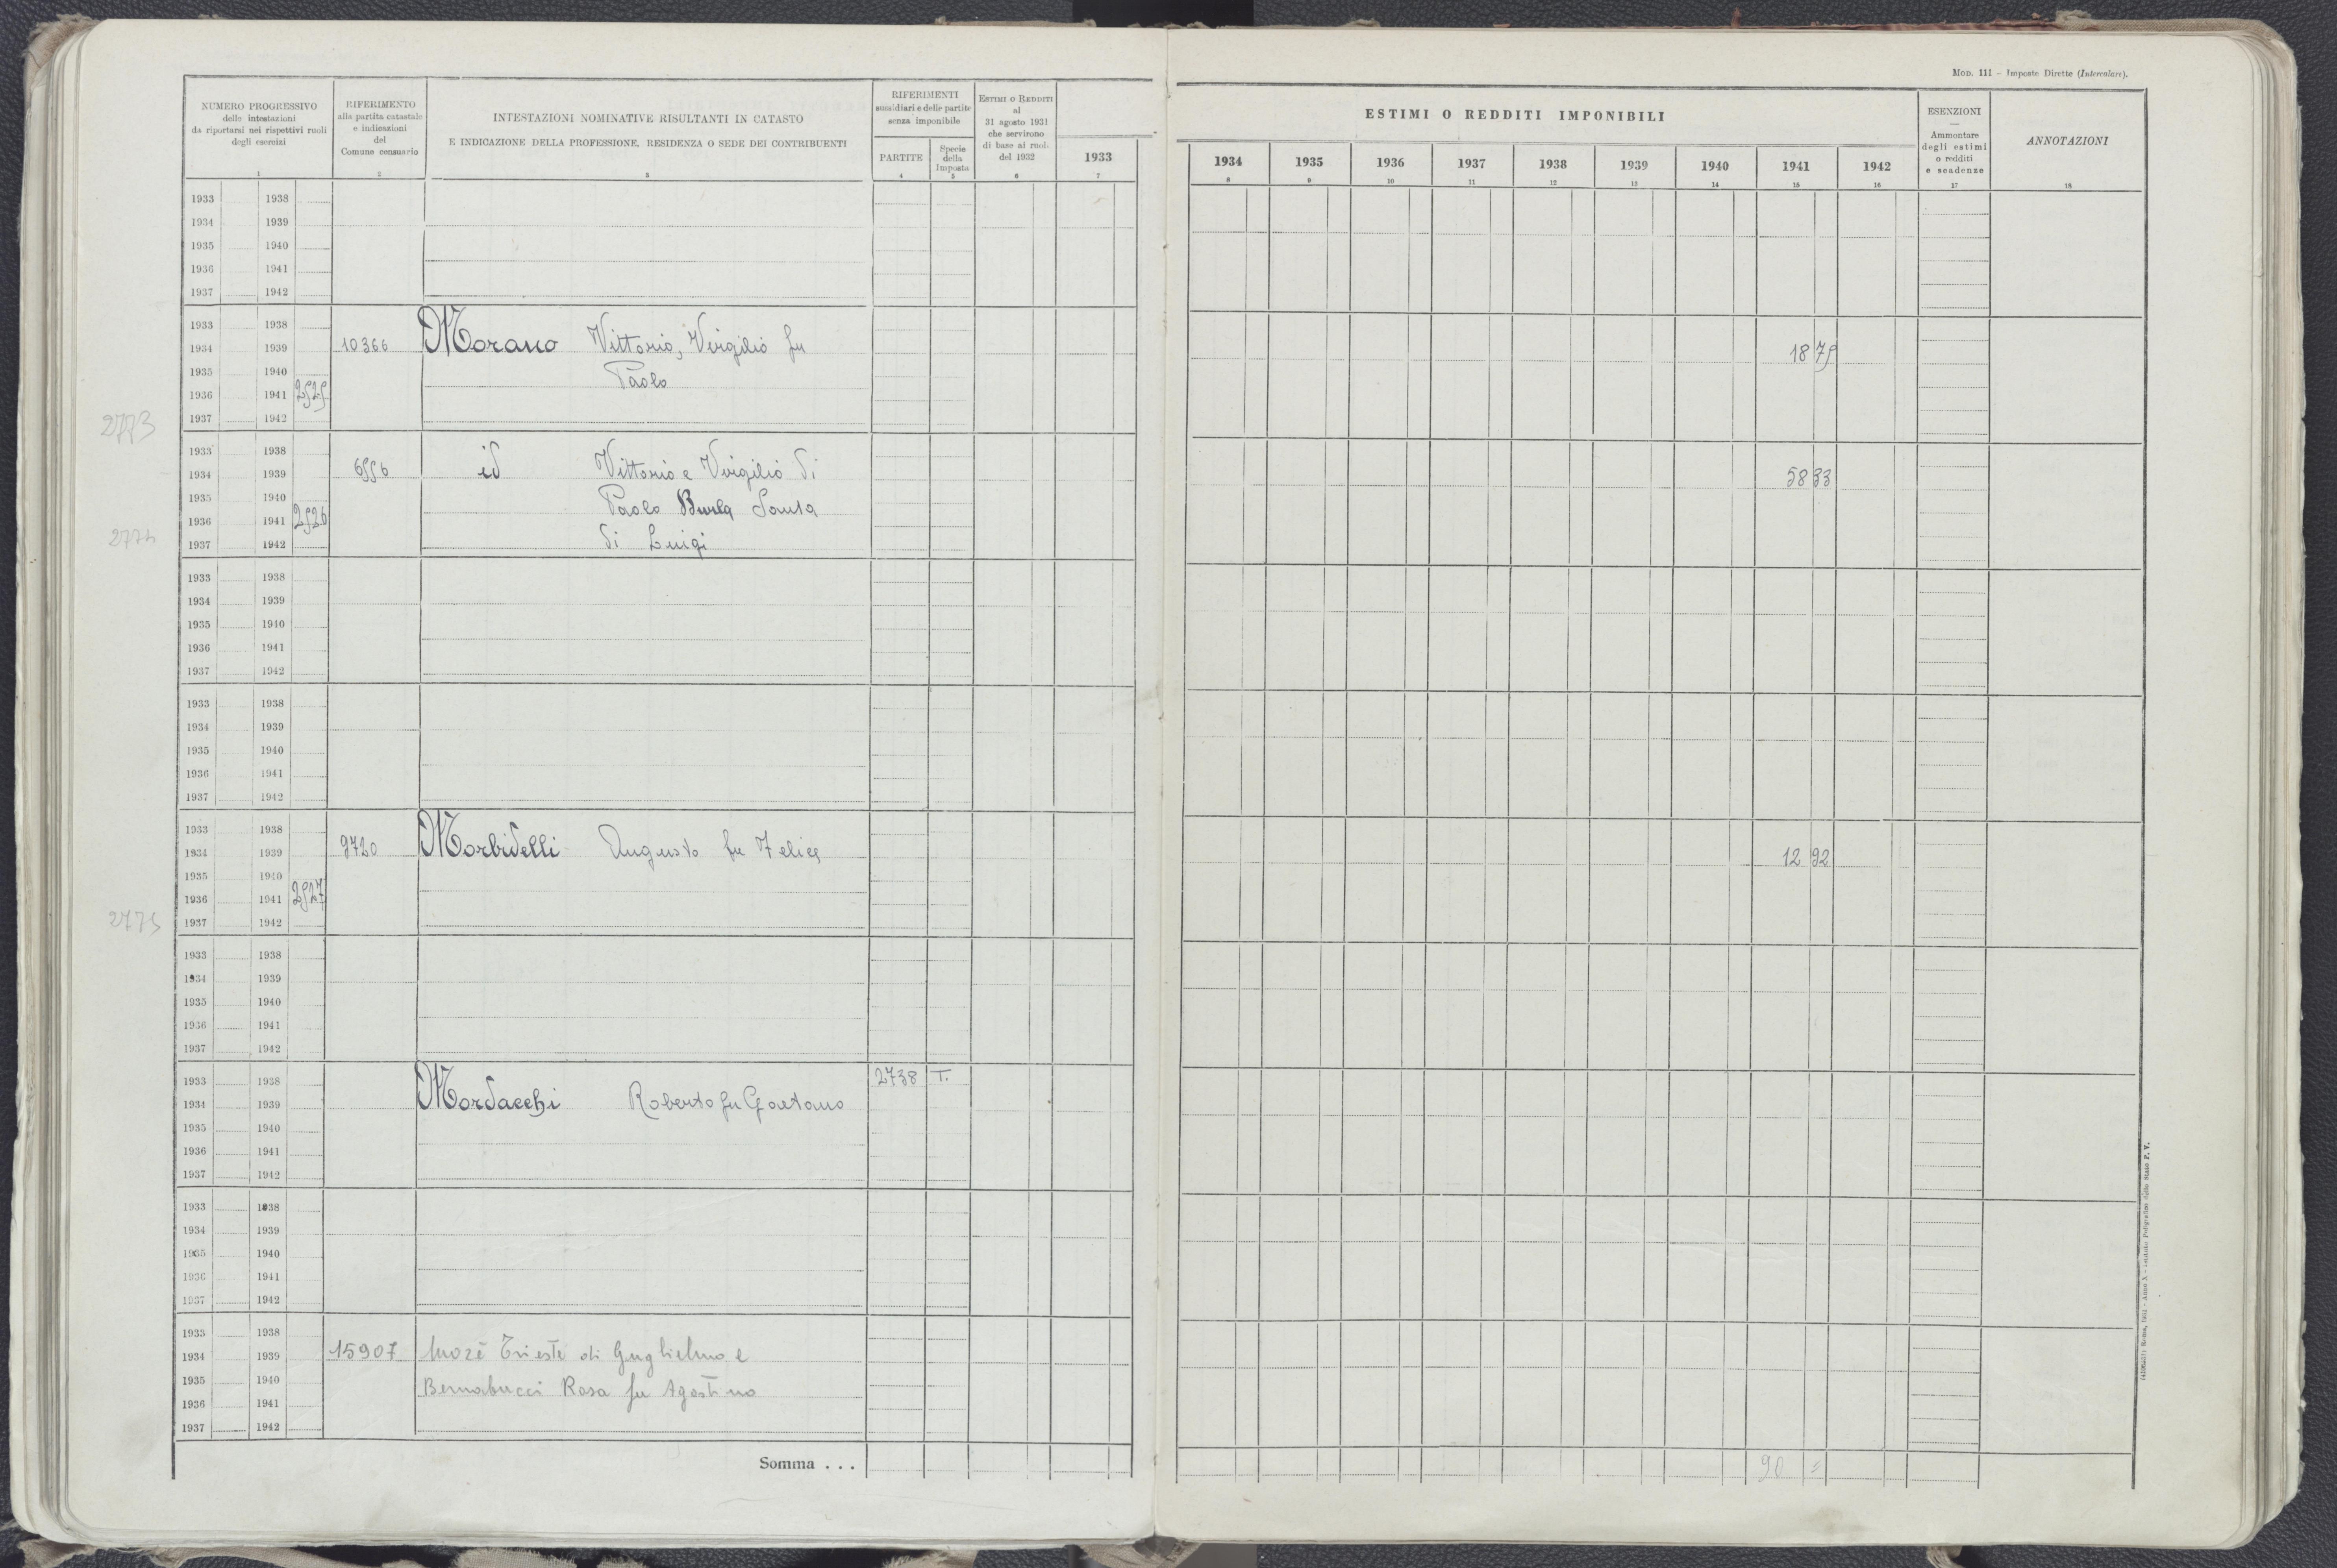 MOD. 111 - Imposte Dirette (Intercalare).
NUMERO PROGRESSIVO
delle intestazioni
da riportarsi nei rispettivi ruoli
degli esercizi
1
RIFERIMENTO
alla partita catastale
e indicazioni
del
Comune censuario
2
INTESTAZIONI NOMINATIVE RISULTANTI IN CATASTO
E INDICAZIONE DELLA PROFESSIONE, RESIDENZA O SEDE DEI CONTRIBUENTI
3
RIFERIMENTI
sussidiari e delle partite
senza imponibile
PARTITE
4
Specie
della
Imposta
5
ESTIMI O REDDITI
al
31 agosto 1931
che servirono
di base ai ruoli
del 1932
6
1933
7
ESTIMI O REDDITI IMPONIBILI
1934 1935 1936 1937 1938 1939 1940 1941 1942
8 9 10 11 12 13 14 15 16
ESENZIONI
Ammontare
degli estimi
o redditi
e scadenze
17
ANNOTAZIONI
18
1933 1938
1934 1939
1935 1940
1936 1941
1937 1942
1933 1938
1934 1939 10366 Morano Vittorio, Virgilio fu 18 75
1935 1940 Paolo
1936 1941 2525
1937 1942
2773
1933 1938
1934 1939 6556 id Vittorio e Virgilio di 58 33
1935 1940 Paolo Burla Santa
1936 1941 2526
1937 1942 di Luigi
2774
1933 1938
1934 1939
1935 1940
1936 1941
1937 1942
1933 1938
1934 1939
1935 1940
1936 1941
1937 1942
1933 1938
1934 1939 9720 Morbidelli Augusto fu Felice 12 92
1935 1940
1936 1941 2527
1937 1942
2775
1933 1938
1934 1939
1935 1940
1936 1941
1937 1942
1933 1938 2738 T.
1934 1939 Mordacchi Roberto fu Gaetano
1935 1940
1936 1941
1937 1942
1933 1938
1934 1939
1935 1940
1936 1941
1937 1942
1933 1938
1934 1939 15907 Morè Trieste di Guglielmo e
1935 1940 Bernabucci Rosa fu Agostino
1936 1941
1937 1942
Somma . . . 90 =